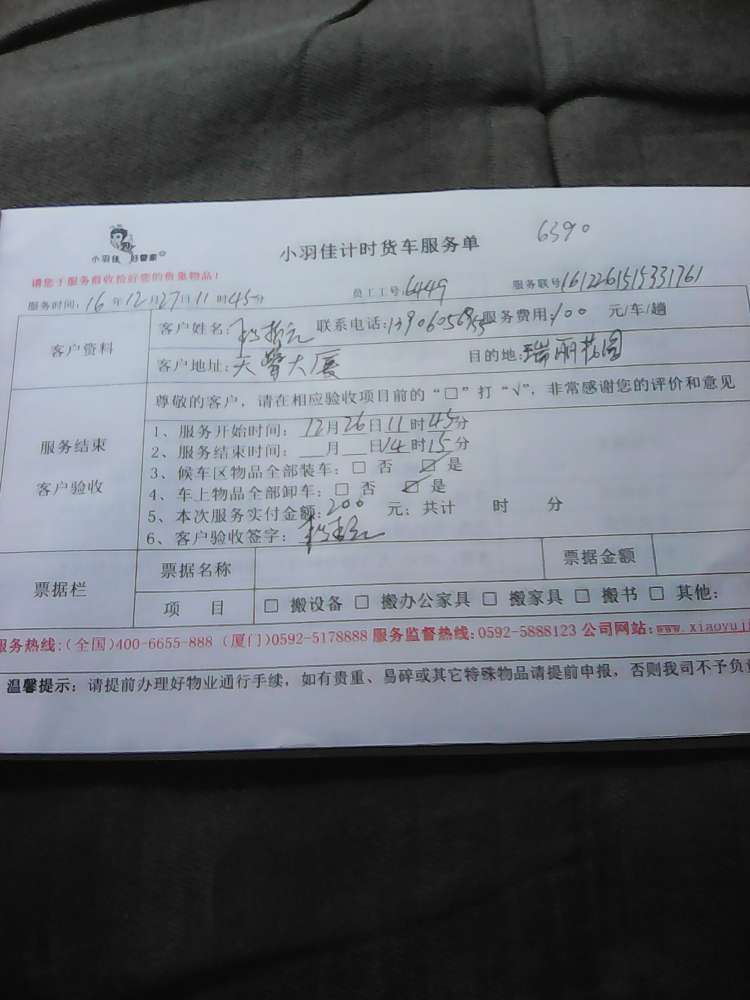 小羽佳 好管家
小羽佳计时货车服务单
6390
请您于服务前收拾好您的贵重物品!
服务时间:16年12月27日11时45分 员工工号:6449 服务联号1612261515331761
客户资料
客户姓名: 联系电话:1390605 服务费用:100 元/车/趟
客户地址:天莺大厦 目的地:瑞丽花园
服务结束
客户验收
尊敬的客户,请在相应验收项目前的“□”打“√”,非常感谢您的评价和意见
1、服务开始时间:12月26日11时45分
2、服务结束时间:__月__日14时15分
3、候车区物品全部装车:□ 否 ☑ 是
4、车上物品全部卸车:□ 否 ☑ 是
5、本次服务实付金额:200 元;共计 时 分
6、客户验收签字:
票据栏
票据名称 票据金额
项 目 □ 搬设备 □ 搬办公家具 □ 搬家具 □ 搬书 □ 其他:
服务热线:(全国)400-6655-888 (厦门)0592-5178888 服务监督热线:0592-5888123 公司网站:www.xiaoyuj
温馨提示:请提前办理好物业通行手续,如有贵重、易碎或其它特殊物品请提前申报,否则我司不予负